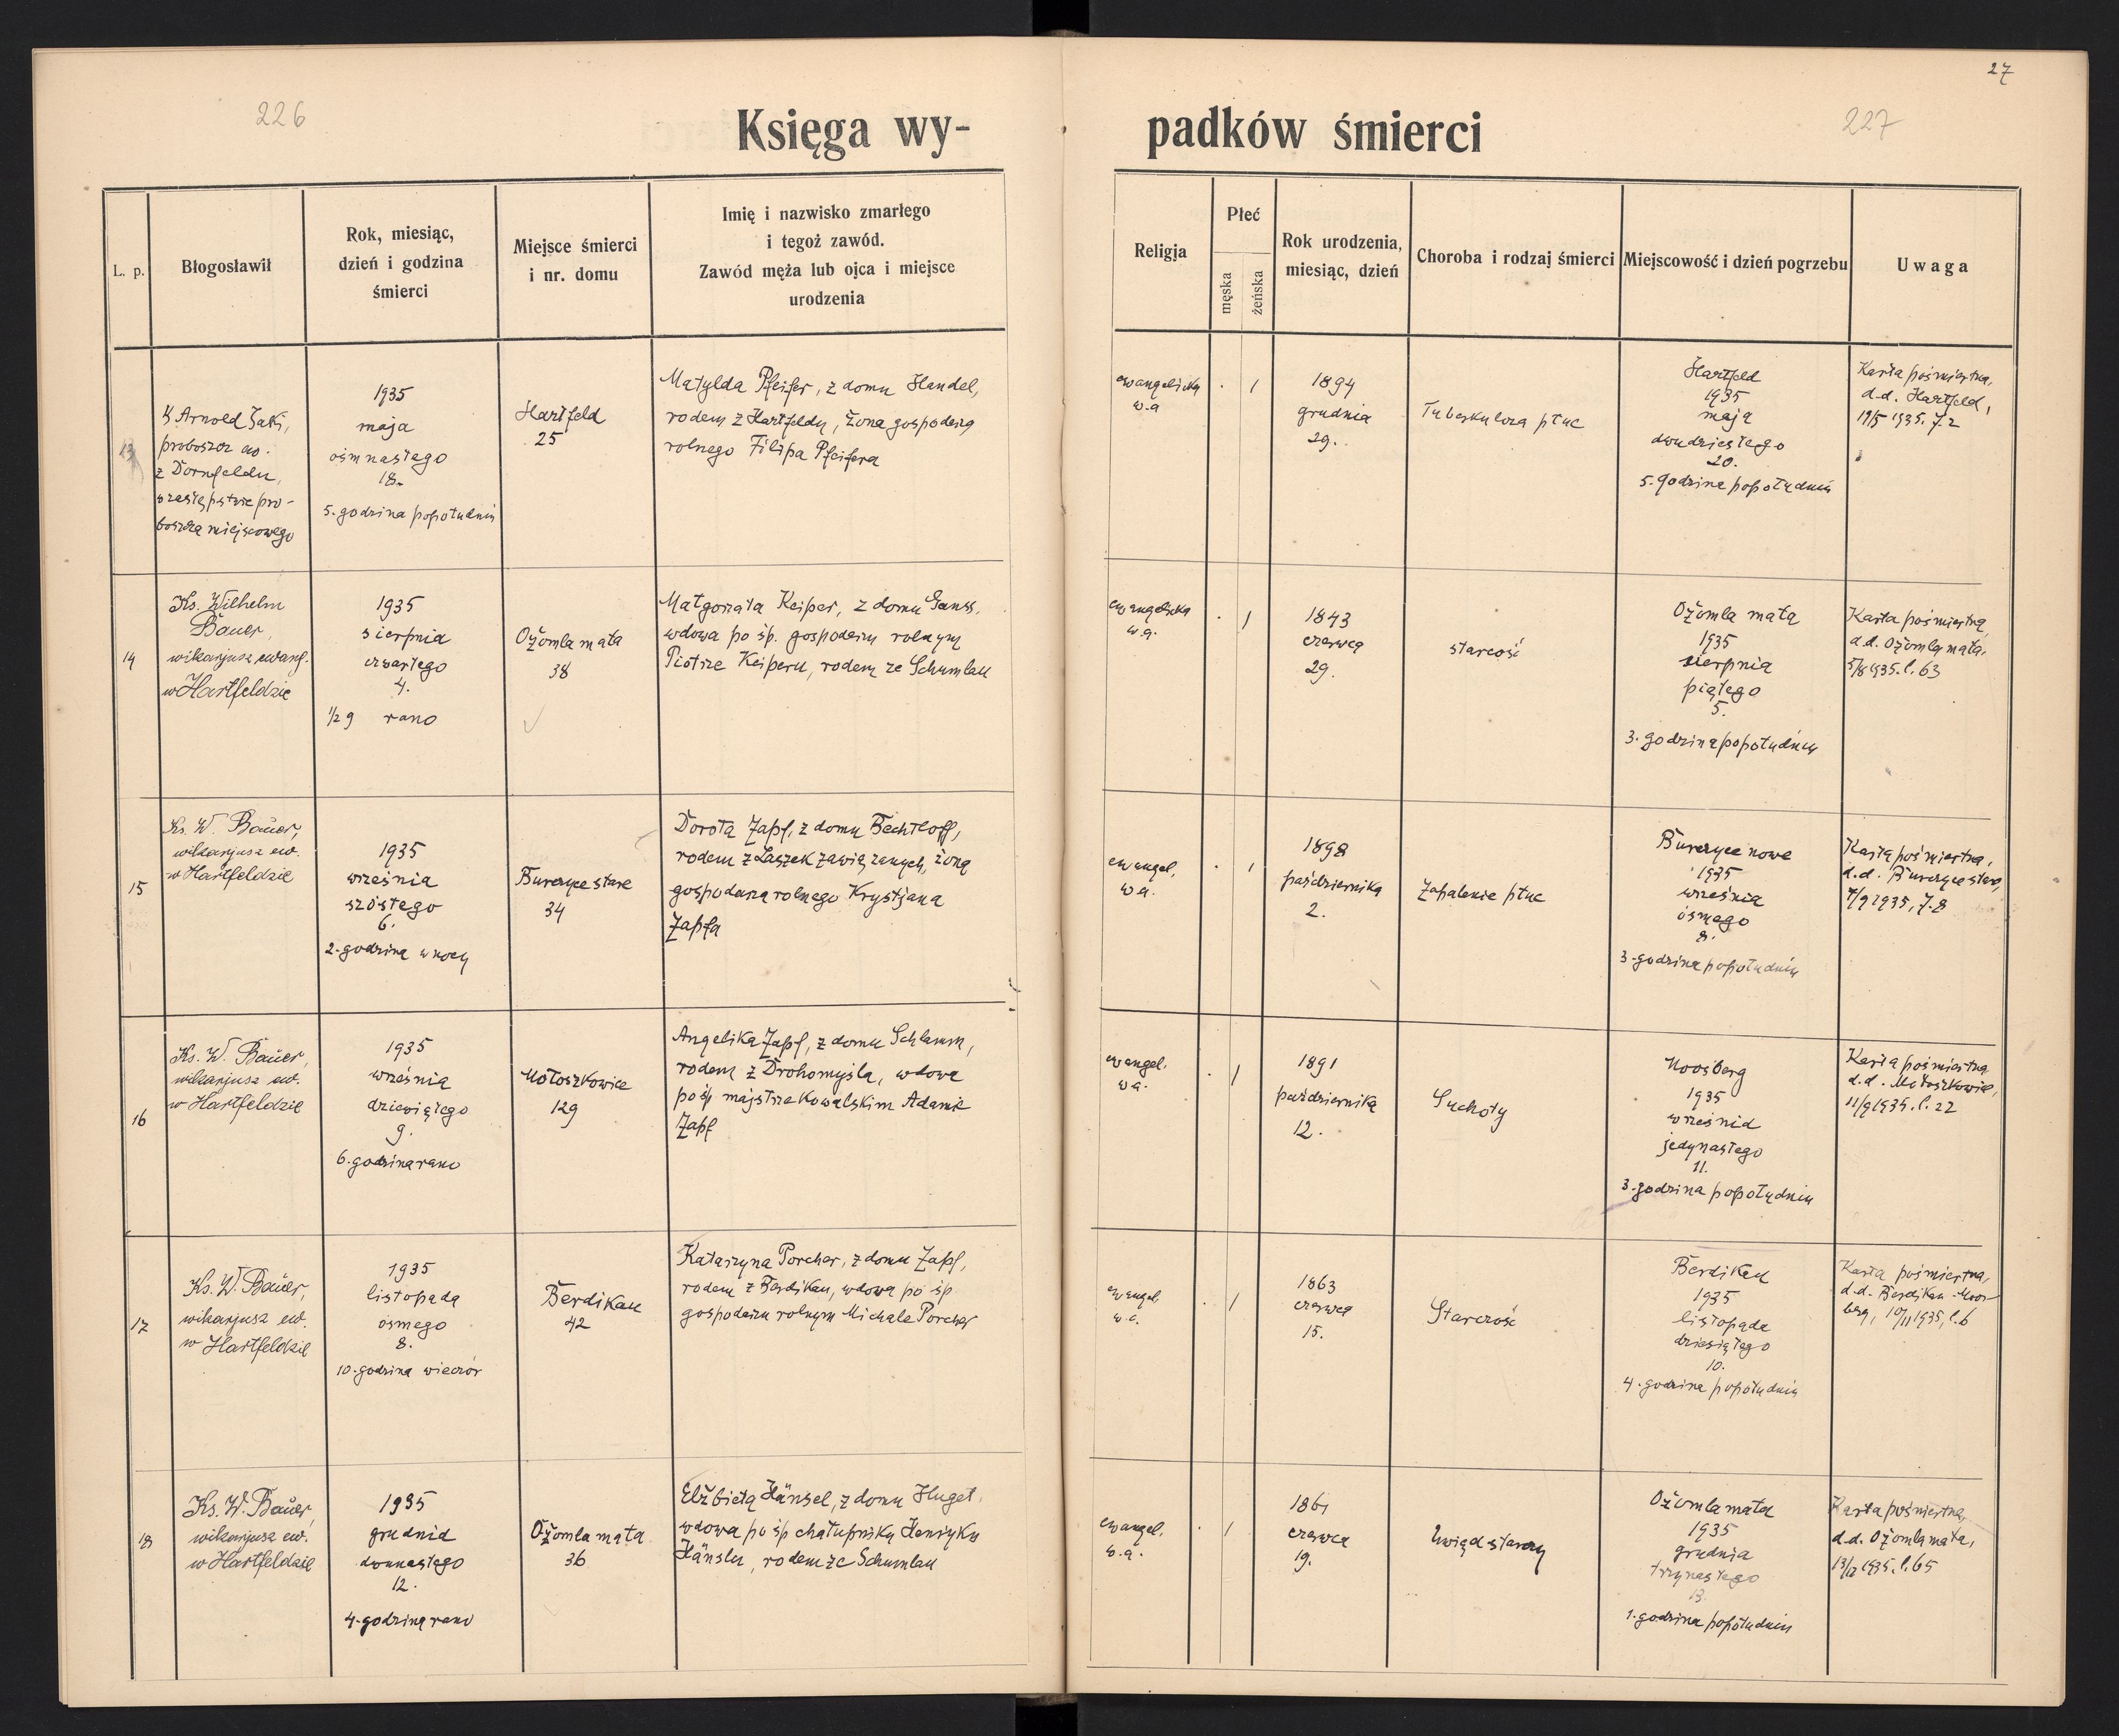 226
27
227
Księga wy-
padków śmierci
L. p.
Błogosławił
Rok, miesiąc,
dzień i godzina
śmierci
Miejsce śmierci
i nr. domu
Imię i nazwisko zmarłego
i tegoż zawód.
Zawód męża lub ojca i miejsce
urodzenia
Religja
Płeć
męska
żeńska
Rok urodzenia,
miesiąc, dzień
Choroba i rodzaj śmierci
Miejscowość i dzień pogrzebu
Uwaga
13
Arnold Żaki,
proboszcz ew.
z Dornfeldu,
w zastępstwie pro-
boszcza miejscowego
1935
maja
ośmnastego
18.
5. godzina popołudniu
Hartfeld
25
Matylda Pfeifer, z domu Handel,
rodem z Hartfeldu, żona gospodarza
rolnego Filipa Pfeifera
ewangelicka
w.a
. 1
1894
grudnia
29.
Tuberkuloza płuc
Hartfeld
1935
maja
dwudziestego
20.
5. godzina popołudniu
Karta pośmiertna,
d.d. Hartfeld,
19/5 1935. l. 2
14
Ks. Wilhelm
Bauer,
wikarjusz ewang.
w Hartfeldzie
1935
sierpnia
czwartego
4.
1/2 9 rano
Ożomla mała
38
Małgorzata Keiper, z domu Ganss,
wdowa po śp. gospodarzu rolnym
Piotrze Keiperu, rodem ze Schumlau
ewangelicka
w.a.
. 1
1843
czerwca
29.
starość
Ożomla mała
1935
sierpnia
piątego
5.
3. godzina popołudniu
Karta pośmiertna
d.d. Ożomla mała,
5/8 1935. l. 63
15
Ks. W. Bauer,
wikarjusz ew.
w Hartfeldzie
1935
września
szóstego
6.
2. godzina w nocy
Burczyce stare
34
Dorota Zapf, z domu Bechtloff,
rodem z Laszek zawiązanych, żona
gospodarza rolnego Krystjana
Zapfa
ewangel.
w.a.
. 1
1898
października
2.
Zapalenie płuc
Burczyce nowe
1935
września
ósmego
8.
3. godzina popołudniu
Karta pośmiertna,
d.d. Burczyce stare,
7/9 1935, l. 8
16
Ks. W. Bauer,
wikarjusz ew.
w Hartfeldzie
1935
września
dziewiątego
9.
6. godzina rano
Mołoszkowice
129
Angelika Zapf, z domu Schlamm,
rodem z Drohomyśla, wdowa
po śp majstrze kowalskim Adamie
Zapf
ewangel.
w.a.
. 1
1891
października
12.
Suchoty
Moosberg
1935
września
jedynastego
11.
3. godzina popołudniu
Karta pośmiertna
d.d. Mołoszkowice,
11/9 1935. l. 22
17
Ks. W. Bauer,
wikarjusz ew.
w Hartfeldzie
1935
listopada
ósmego
8.
10. godzina wieczór
Berdikau
42
Katarzyna Porcher, z domu Zapf,
rodem z Berdikau, wdowa po śp
gospodarzu rolnym Michale Porcher
ewangel.
w.a.
. 1
1863
czerwca
15.
Starczość
Berdikau
1935
listopada
dziesiątego
10.
4. godzina popołudniu
Karta pośmiertna,
d.d. Berdikau-Moos-
berg, 10/11 1935, l. 6
18
Ks. W. Bauer,
wikarjusz ew.
w Hartfeldzie
1935
grudnia
dwunastego
12.
4. godzina rano
Ożomla mała
36
Elżbieta Hänsel, z domu Huget,
wdowa po śp chałupniku Henryku
Hänslu, rodem ze Schumlau
ewangel.
w.a.
. 1
1861
czerwca
19.
Uwiąd starczy
Ożomla mała
1935
grudnia
trzynastego
13.
1. godzina popołudniu
Karta pośmiertna,
d.d. Ożomla mała,
13/12 1935. l. 65